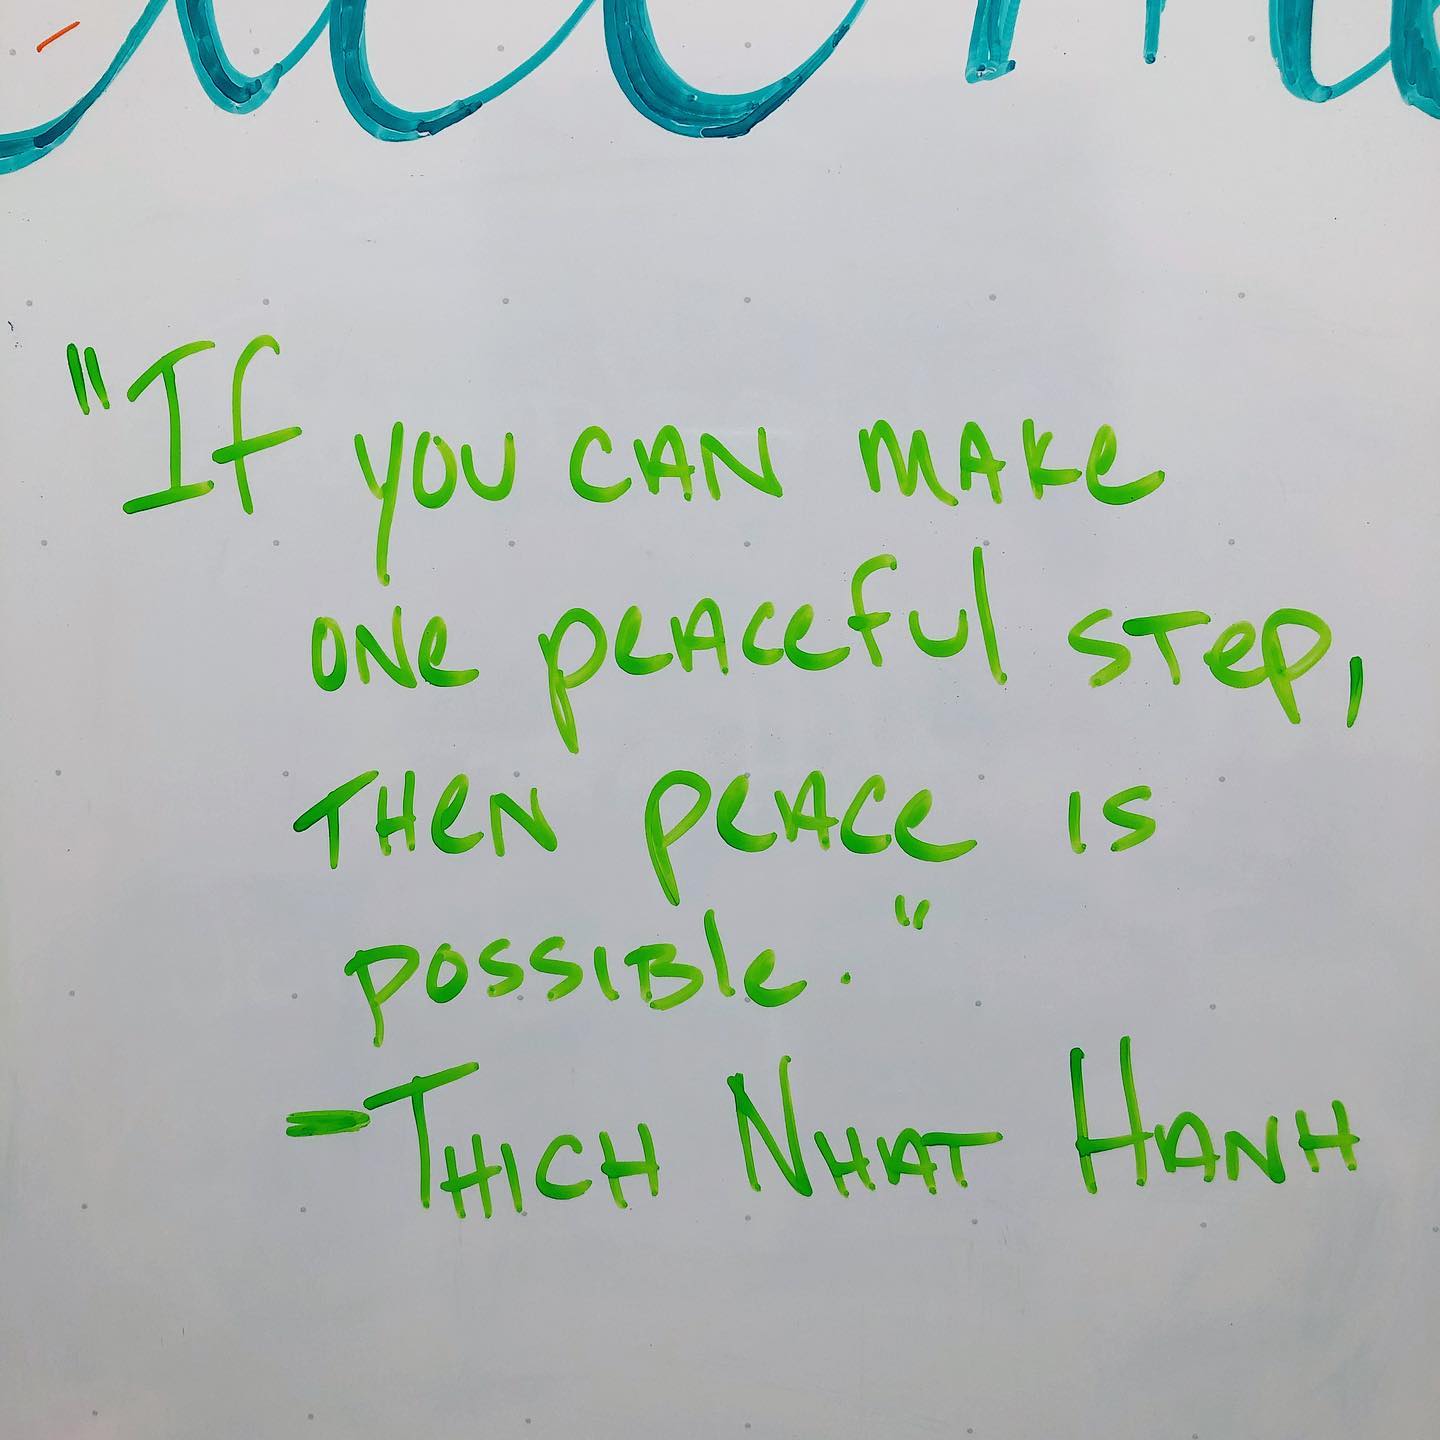 "If you can make
one peaceful step,
then peace is
possible."
-Thich Nhat Hanh